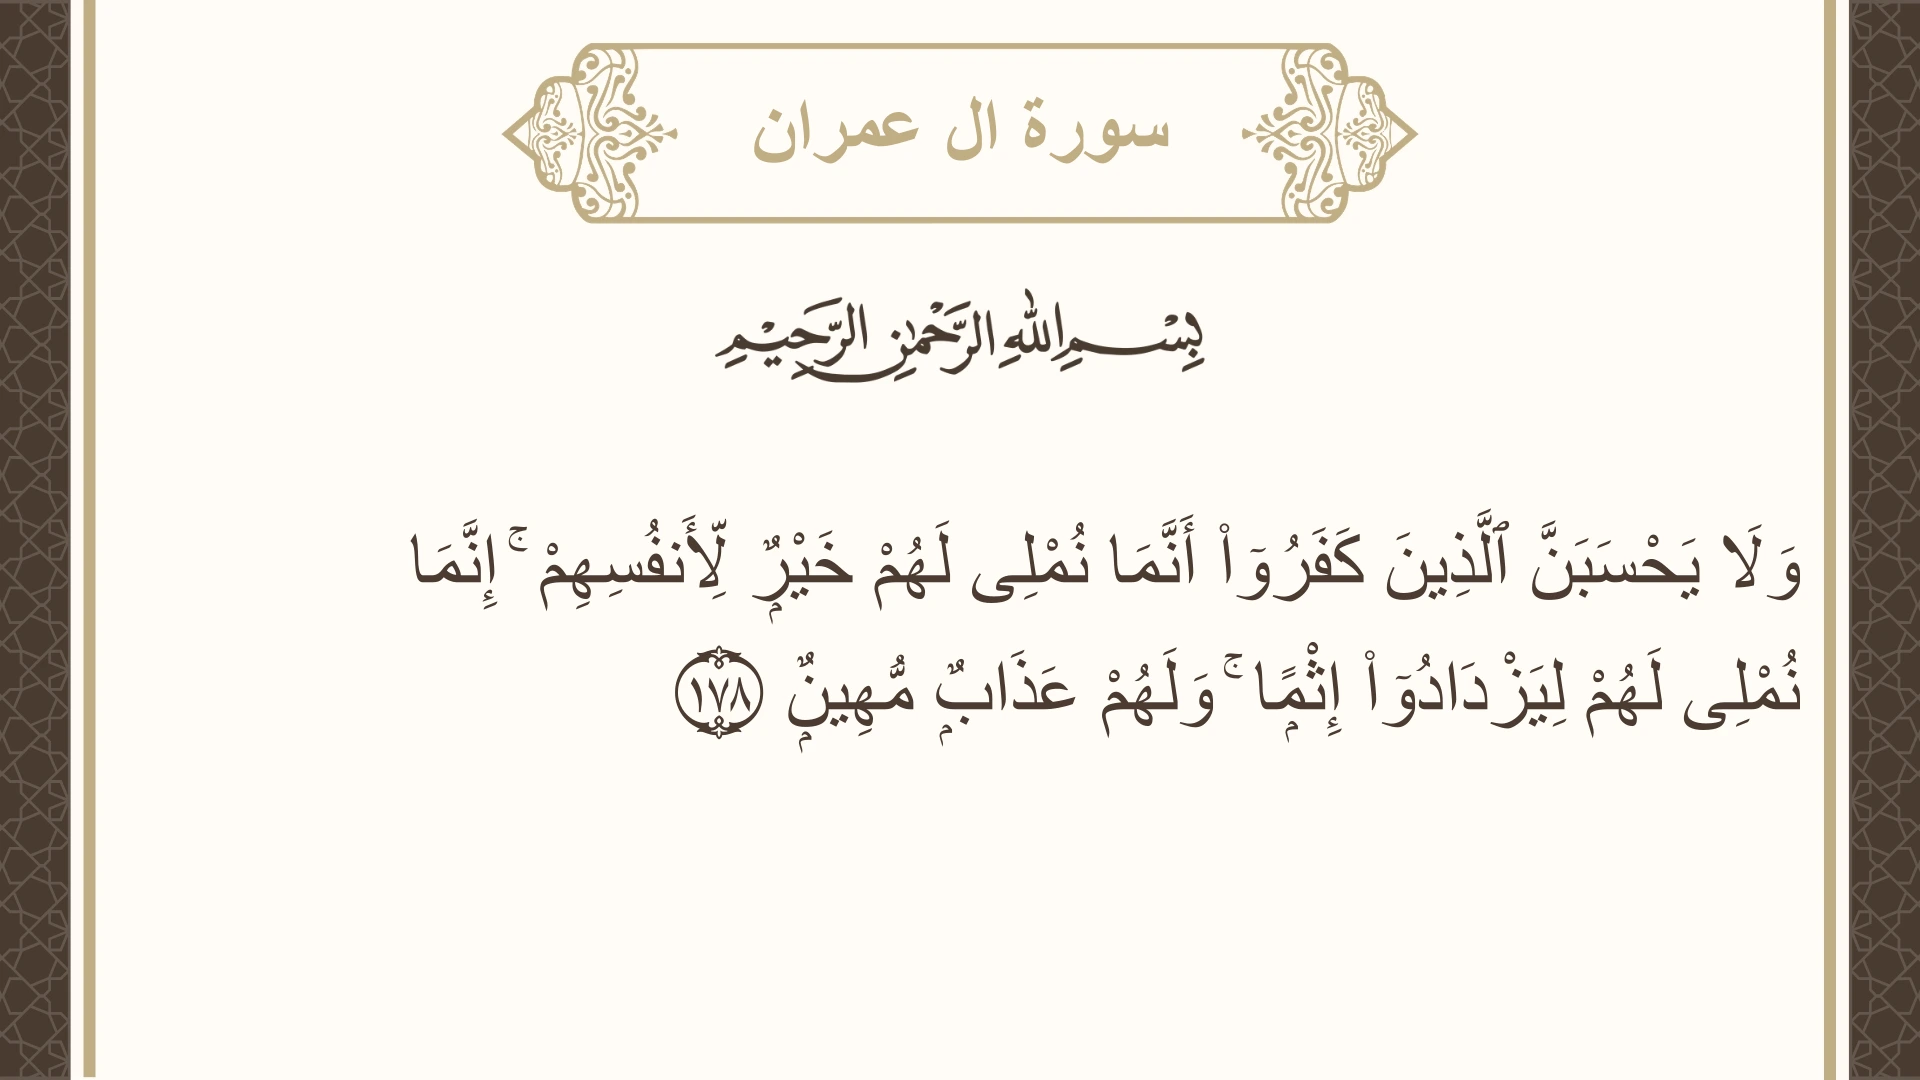 سورة ال عمران
بِسْمِ اللهِ الرَّحْمٰنِ الرَّحِيْمِ
وَلَا يَحْسَبَنَّ ٱلَّذِينَ كَفَرُوٓا۟ أَنَّمَا نُمْلِى لَهُمْ خَيْرٌۭ لِّأَنفُسِهِمْ ۚ إِنَّمَا
نُمْلِى لَهُمْ لِيَزْدَادُوٓا۟ إِثْمًۭا ۚ وَلَهُمْ عَذَابٌۭ مُّهِينٌۭ ١٧٨